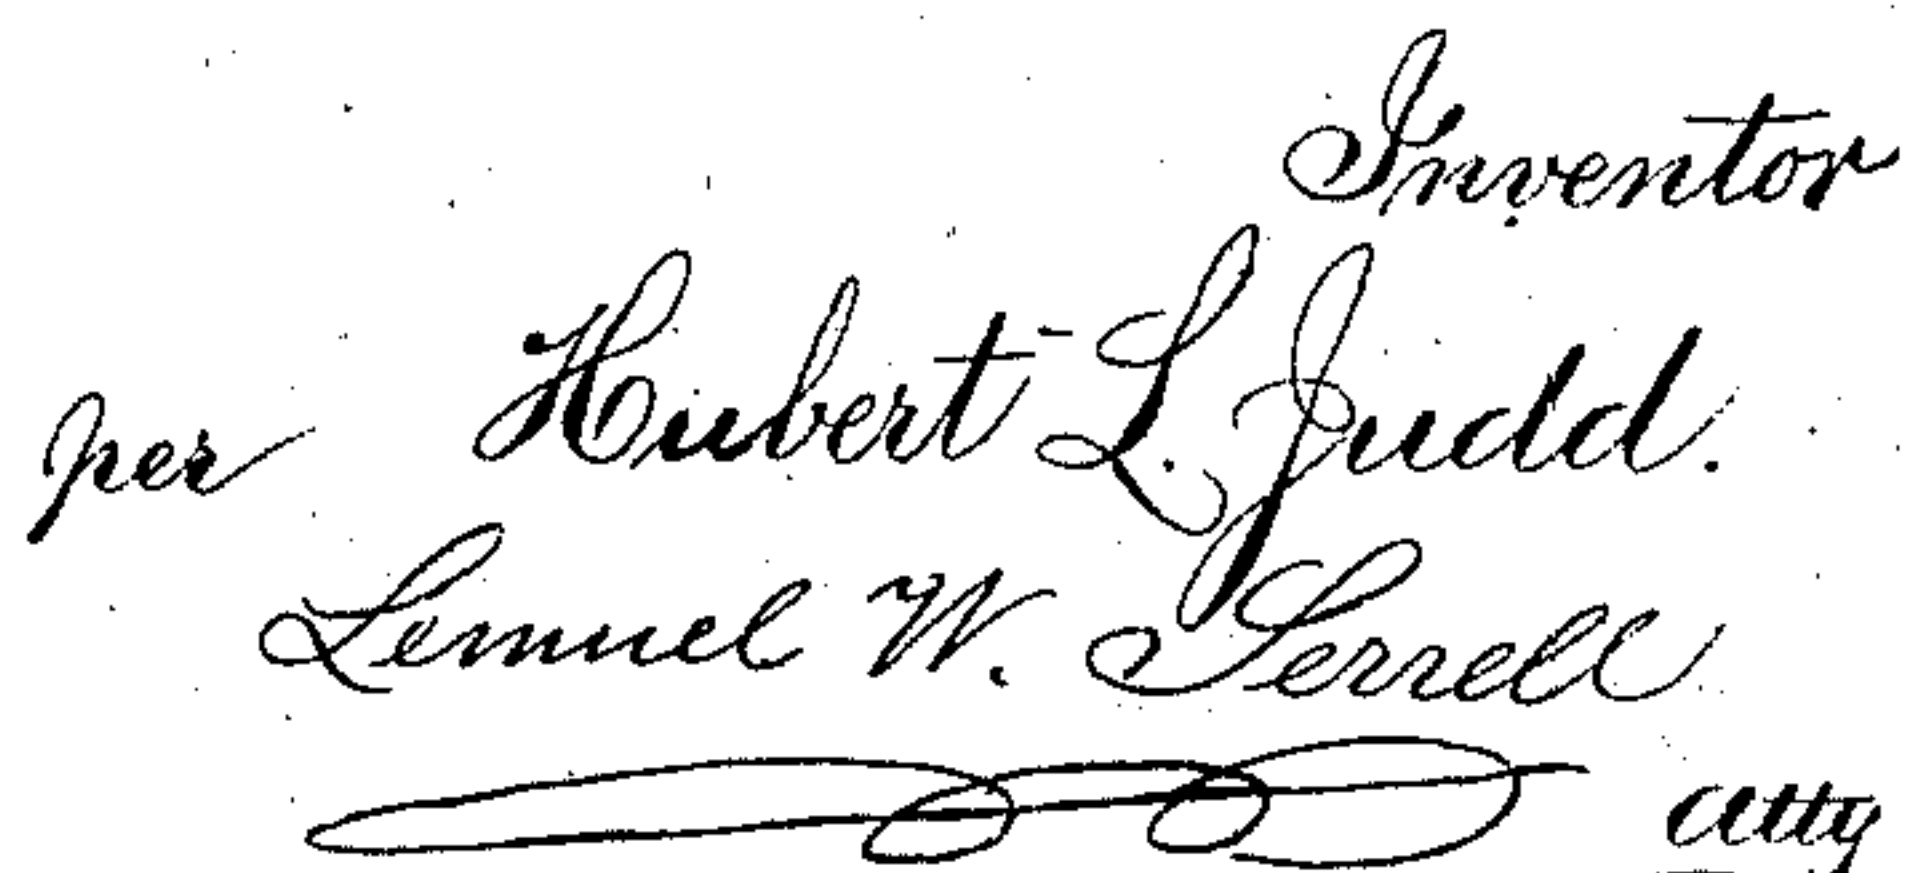 Inventor
Hubert L. Judd.
per
Lemuel W. Serrell
atty